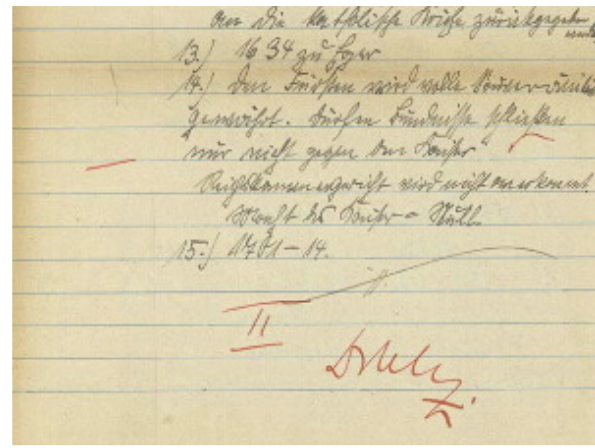 an die katholische Kirche zurückgegeben
werden
13.) 1634 zu Eger
14.) Den Fürsten wird volle Souveränität
gewährt. Dürfen Bündnisse schließen
"nur nicht gegen den Kaiser"
Reichskammergericht wird nicht anerkannt.
Macht des Kaisers = Null.
15.) 1701 – 14.
II